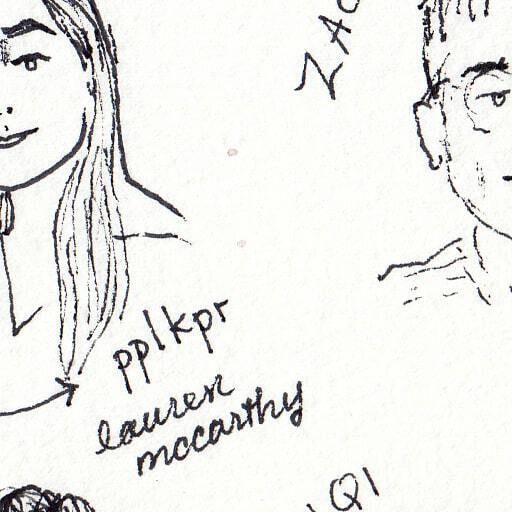 ZAC
pplkpr
lauren
mccarthy
QI